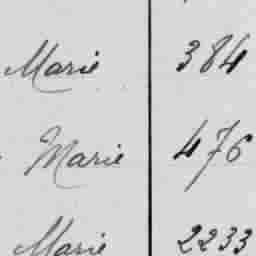 Marie 384
Marie 476
Marie 2233